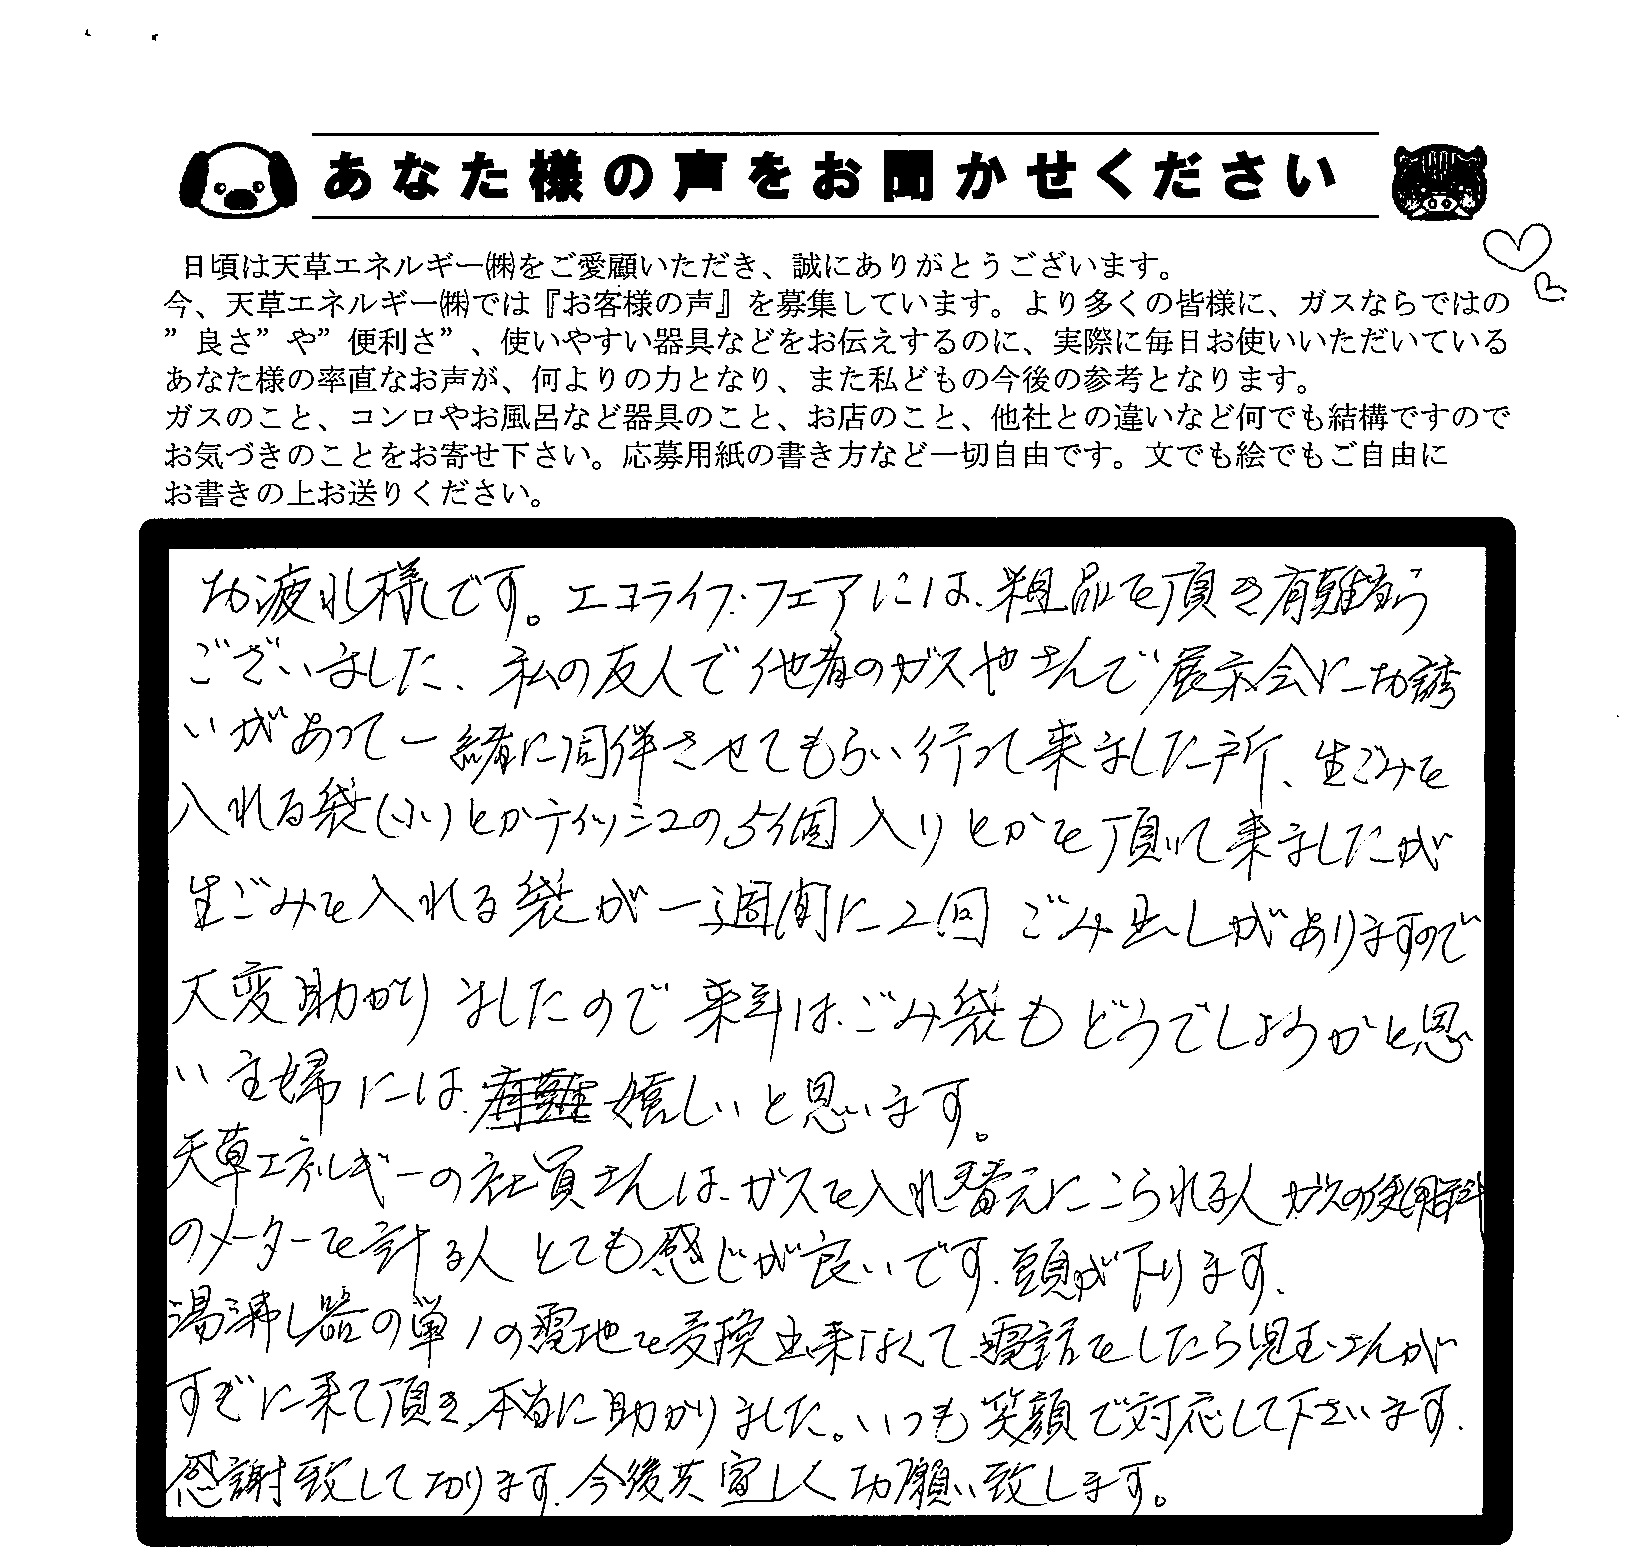 あなた様の声をお聞かせください
日頃は天草エネルギー㈱をご愛顧いただき、誠にありがとうございます。
今、天草エネルギー㈱では『お客様の声』を募集しています。より多くの皆様に、ガスならではの
”良さ”や”便利さ”、使いやすい器具などをお伝えするのに、実際に毎日お使いいただいている
あなた様の率直なお声が、何よりの力となり、また私どもの今後の参考となります。
ガスのこと、コンロやお風呂など器具のこと、お店のこと、他社との違いなど何でも結構ですので
お気づきのことをお寄せ下さい。応募用紙の書き方など一切自由です。文でも絵でもご自由に
お書きの上お送りください。
お疲れ様です。エコライフ・フェアには、粗品を頂き有難う
ございました、私の友人で他者のガスやさんで展示会にお誘
いがあって一緒に同伴させてもらい行って来ました所、生ごみを
入れる袋(小)とかティッシュの5個入りとかを頂いて来ましたが
生ごみを入れる袋が一週間に2回ごみ出しがありますので
大変助かりましたので来年は、ごみ袋もどうでしょうかと思
い主婦には、嬉しいと思います。
天草エネルギーの社員さんは、ガスを入れ替えにこられる人ガスの使用料
のメーターを計る人とても感じが良いです、頭が下ります、
湯沸し器の単1の電池を交換出来なくて、電話をしたら児玉さんが
すぐに来て頂き、本当に助かりました。いつも笑顔で対応して下さいます、
感謝致しております、今後共宜しくお願い致します。